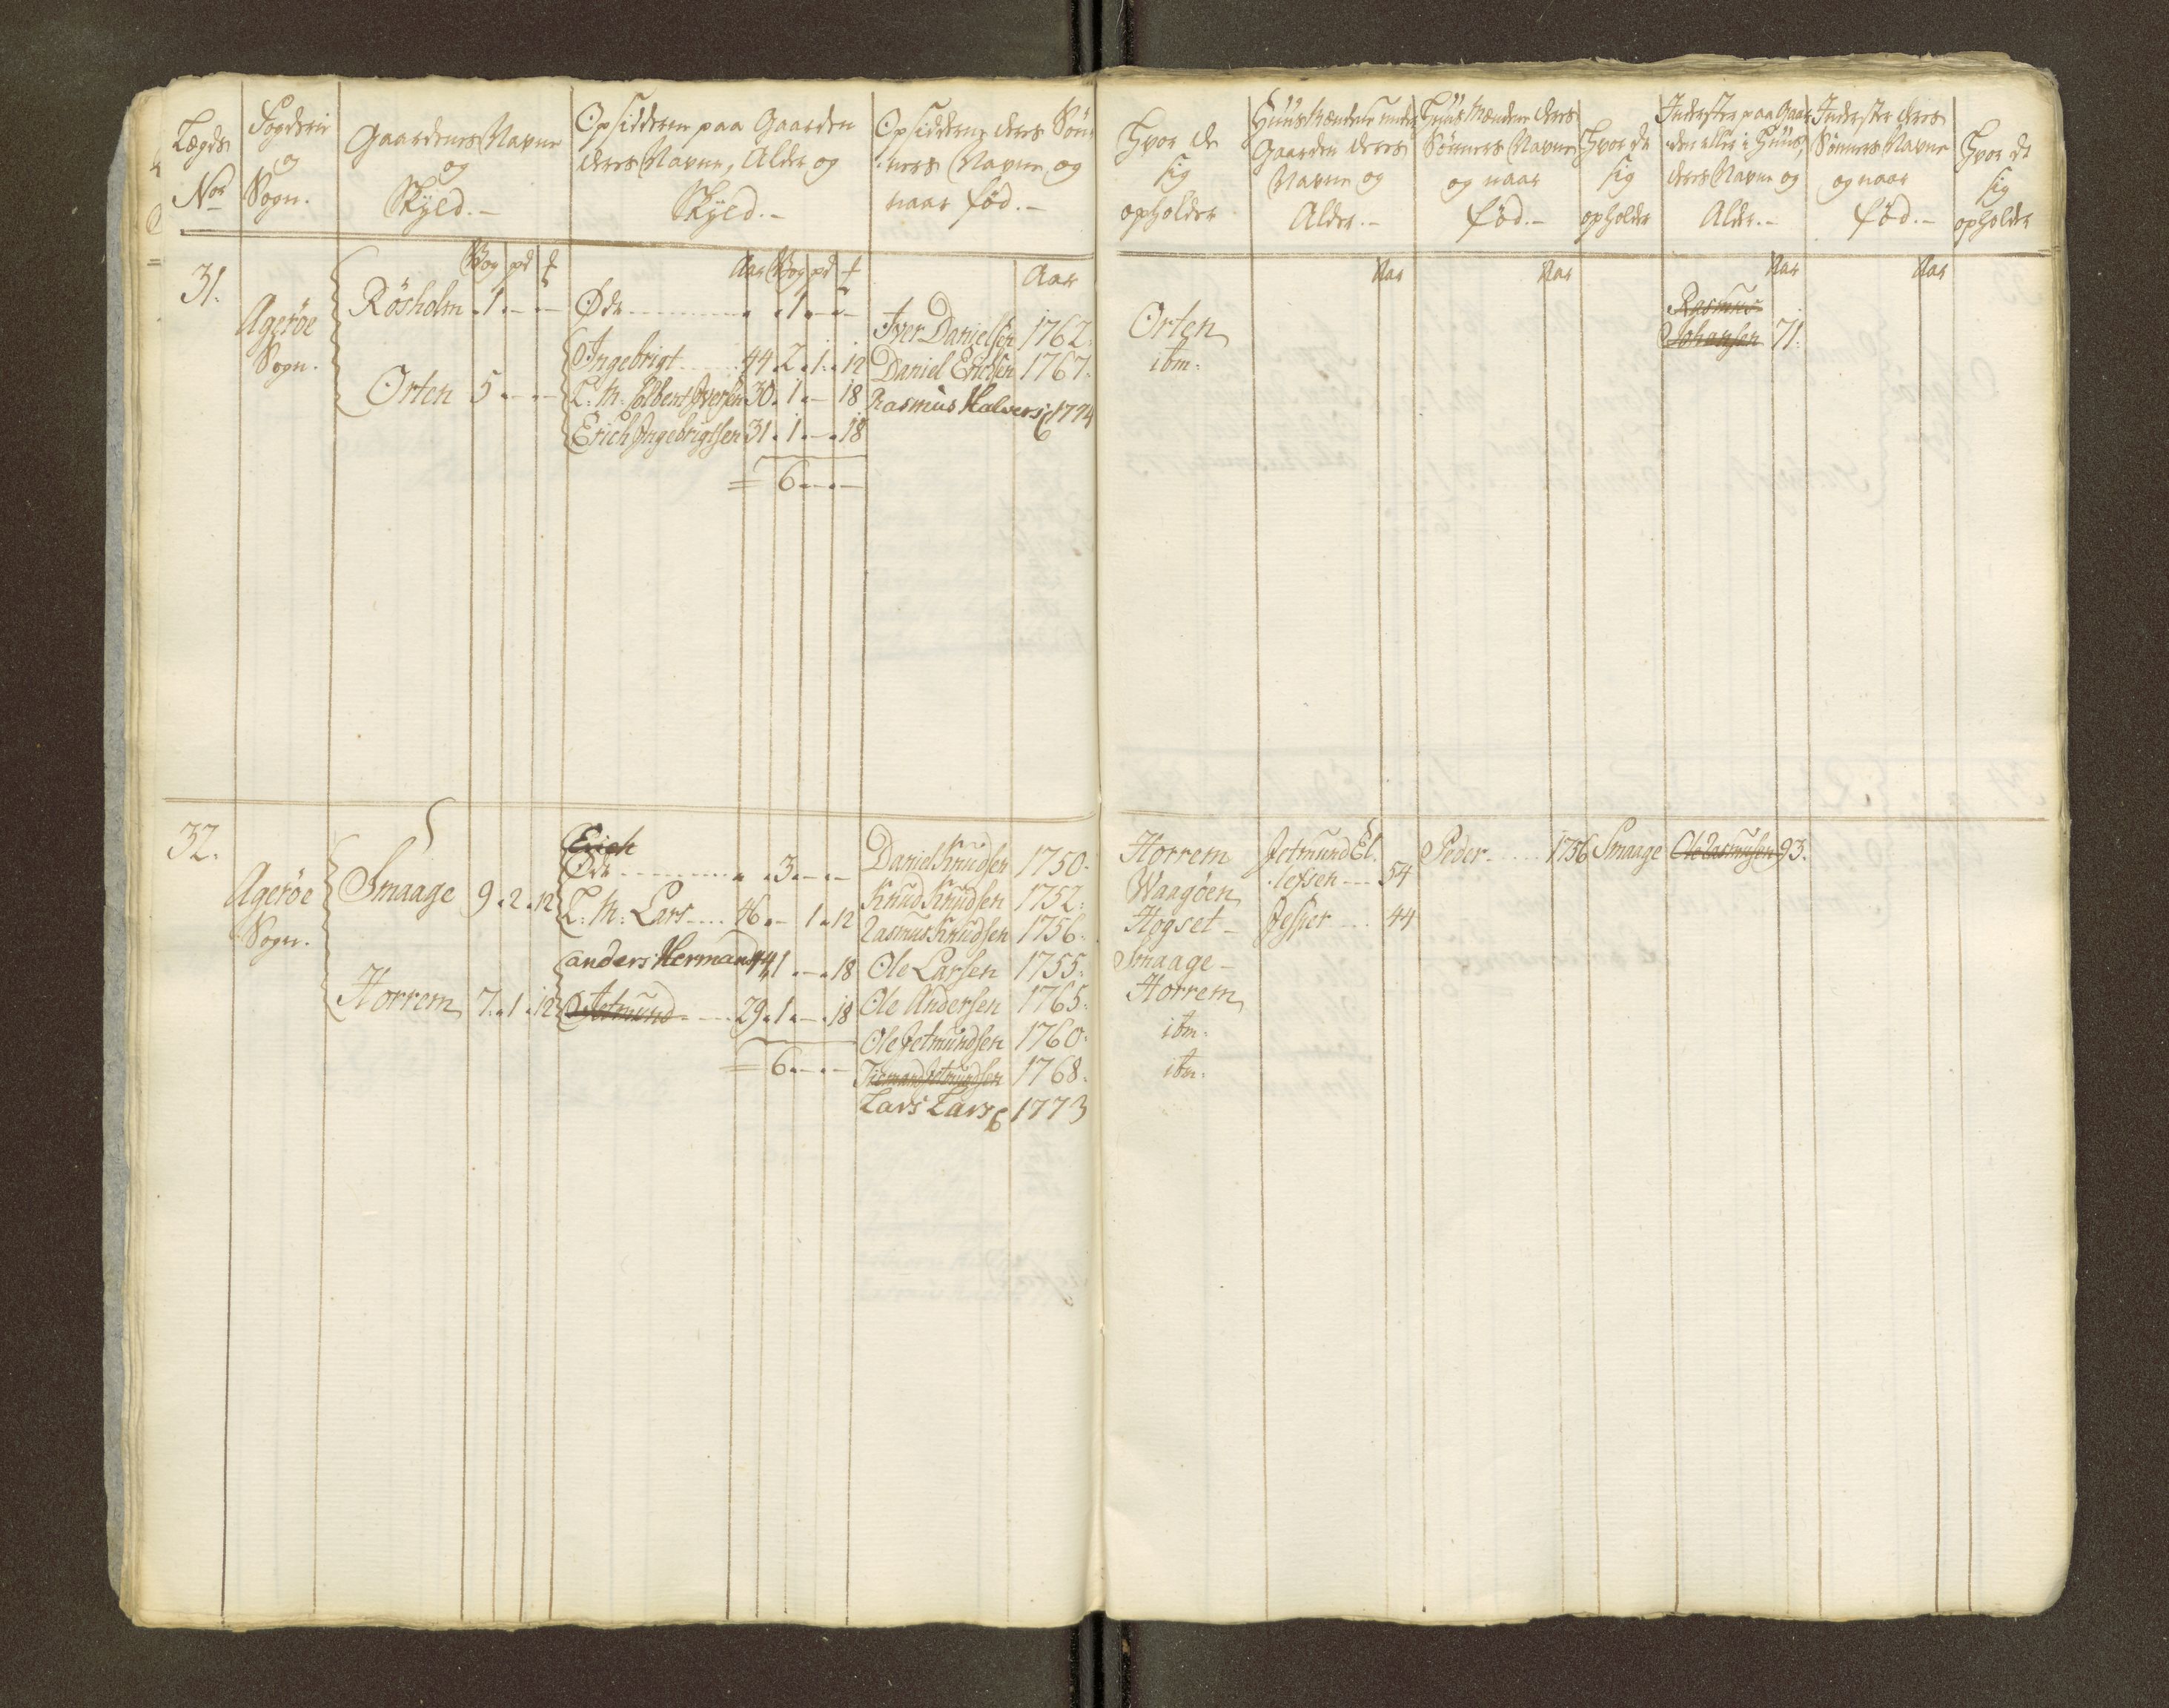 Lægds
No
Fogderie
og
Sogn.
Gaardenes Navne
og
Skyld.-
Opsiddere paa Gaarden
deres Navne, Alder og
Skyld.-
Opsidderne deres Søn-
ners Navne og
naar fød.-
Hvor de
sig
opholder
Huusmændene under
Gaarden deres
Navne og
Alder.-
Huusmændene deres
Sønners Navne
og naar
fød.-
Hvor de
sig
opholder
Inderster paa Gaar
den eller i Huus,
deres Navne og
Alder.-
Inderster deres
Sønners Navne
og naar
fød.-
Hvor de
sig
opholder
Wog pd
Aar Wog pd
Aar
Aar
Aar
Aar
Aar
31.
Agerøe
Sogn.
Røsholm 1 - -
Orten 5 - -
Øde 1 - -
Ingebrigt 44 2 1 12
L: M: Colbent Iversen 30 1 - 18
Erich Ingebrigtsen 31 1 - 18
= 6 - -
Iver Danielsen 1762.
Daniel Erichsen 1767.
Rasmus Halvers 1774
Orten
ibm.
Rasmus
Johansen 71.
32.
Agerøe
Sogn.
Smaage 9 2 12
Horrem 7 1 12
Erich
Øde 3 - -
L: M: Lars 46 - 1 12
anders Hermand 44 1 - 18
Jetmund 29 1 - 18
= 6 - -
Daniel Knudsen 1750.
Knud Knudsen 1752.
Rasmus Knudsen 1756.
Ole Larsen 1755.
Ole Andersen 1765.
Ole Jetmundsen 1760.
Jetmundsen 1768.
Lars Lars 1773
Horrem
Waagøen
Hogset -
Smaage -
Horrem
ibm.
ibm.
Jetmund El.
lefsen 54
Jesper 44
Peder 1756 Smaage
Ole Rasmusen 93.